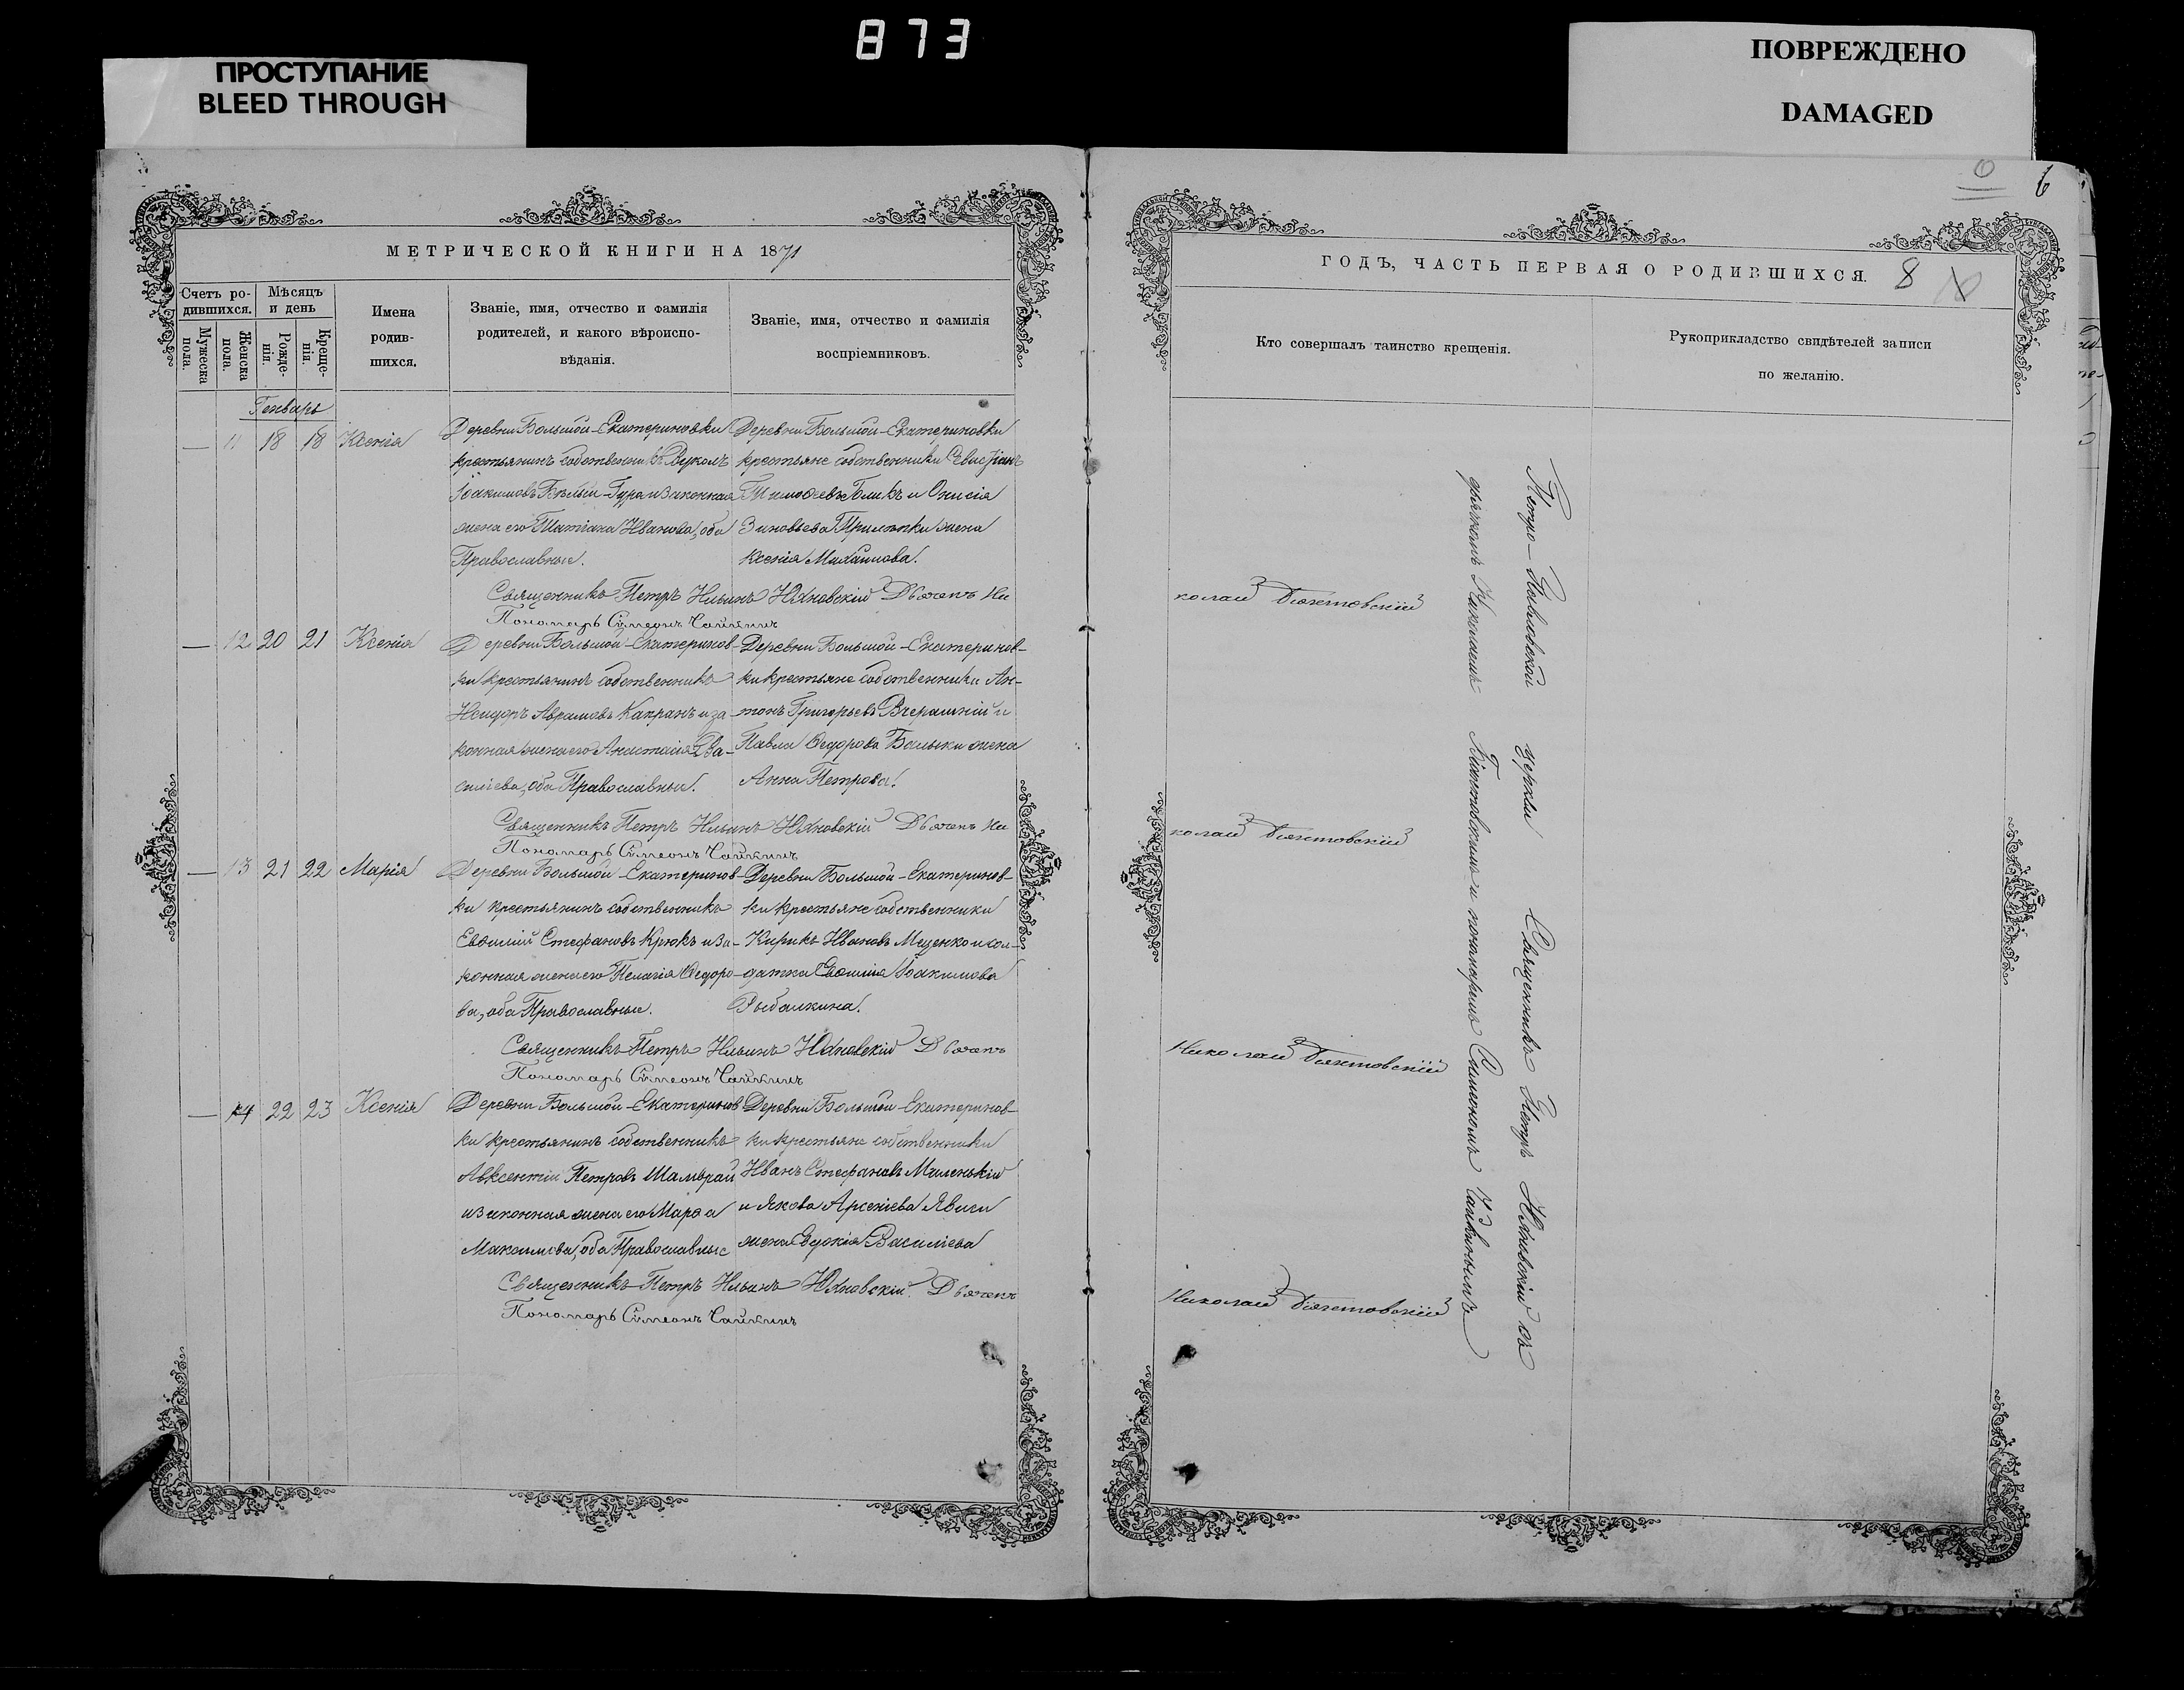 873
ПРОСТУПАНИЕ
BLEED THROUGH
ПОВРЕЖДЕНО
DAMAGED
6
МЕТРИЧЕСКОЙ КНИГИ НА 1871
Счетъ ро-
дившихся.
Мужеска пола.
Женска пола.
Мѣсяцъ
и день
Рожде-
нія.
Креще-
нія.
Имена
родив-
шихся.
Званіе, имя, отчество и фамилія
родителей, и какого вѣроиспо-
вѣданія.
Званіе, имя, отчество и фамилія
воспріемниковъ.
Генварь
— 11 18 18 Ксенія
Деревни Большой-Екатериновки
крестьянинъ собственникъ Вуколъ
Іоакимовъ Бѣлый-Гура и законная
жена его Татіана Иванова, оба
Православные.
Деревни Большой-Екатериновки
крестьяне собственники
Тимофеевъ и Онисія
Зиновьева жена
Ксенія Михаилова.
Священникъ Петръ Ильинъ Юхновскій Дьячекъ Ни
Пономарь Сѵмеонъ Чайкинъ
— 12 20 21 Ксенія
Деревни Большой-Екатеринов-
ки крестьянинъ собственникъ
Исидоръ Аврамовъ Капранъ и за-
конная жена его Анастасія Ва-
силіева, оба Православные.
Деревни Большой-Екатеринов-
ки крестьяне собственники Ан-
тонъ Григорьевъ Вчерашній и
Павла Ѳедорова жена
Анна Петрова.
Священникъ Петръ Ильинъ Юхновскій Дьячекъ Ни
Пономарь Сѵмеонъ Чайкинъ
— 13 21 22 Марія
Деревни Большой-Екатеринов-
ки крестьянинъ собственникъ
Евѳимій Стефановъ Крюкъ и за-
конная жена его Пелагія Ѳедоро-
ва, оба Православные.
Деревни Большой-Екатеринов-
ки крестьяне собственники
Кирикъ Ивановъ Мащенко и сол-
датка Евѳимія Іоакимова
Рыбалкина.
Священникъ Петръ Ильинъ Юхновскій Дьячекъ
Пономарь Сѵмеонъ Чайкинъ
— 14 22 23 Ксенія
Деревни Большой-Екатеринов
ки крестьянинъ собственникъ
Авксентій Петровъ Шамрай
и законная жена его Марѳа
Максимова, оба Православные
Деревни Большой-Екатеринов-
ки крестьяне собственники
Иванъ Стефановъ Маленькій
и Якова Арсеніева
жена Евдокія Василіева
Священникъ Петръ Ильинъ Юхновскій. Дьячекъ
Пономарь Сѵмеонъ Чайкинъ
ГОДЪ, ЧАСТЬ ПЕРВАЯ О РОДИВШИХСЯ. 8
Кто совершалъ таинство крещенія.
Рукоприкладство свидѣтелей записи
по желанію.
колай
колай
Николай
Николай
Петро-Павловской церкви Священникъ Петръ Юхновскій съ
дьячкомъ Николаемъ и пономаремъ Симеономъ Чайкинымъ